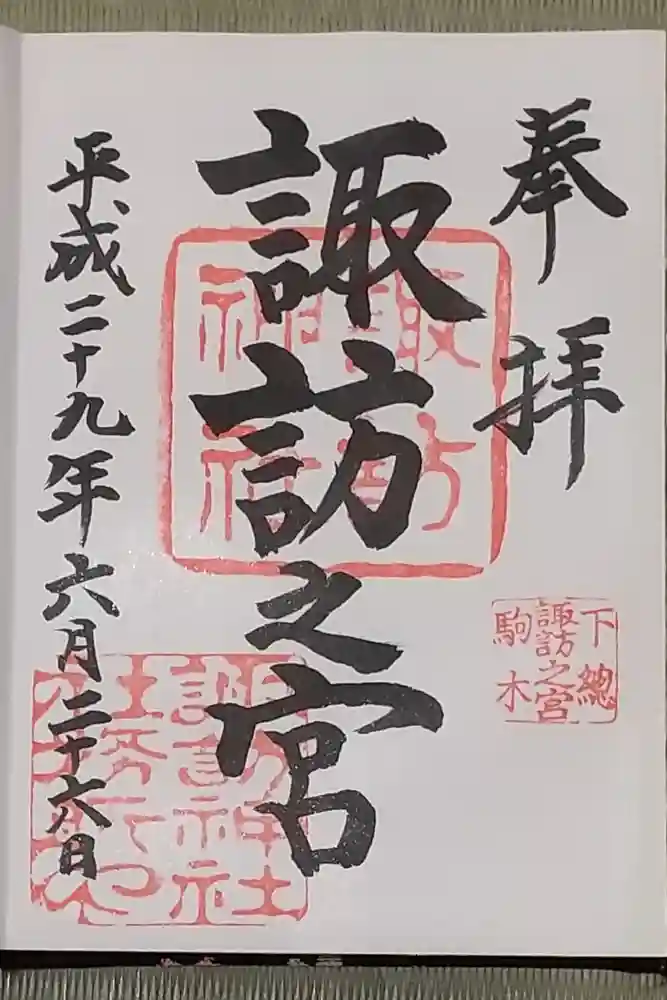 奉拝
下總
諏訪之宮
駒木
諏訪之宮
諏訪
神社
諏訪神社
平成二十九年六月二十六日